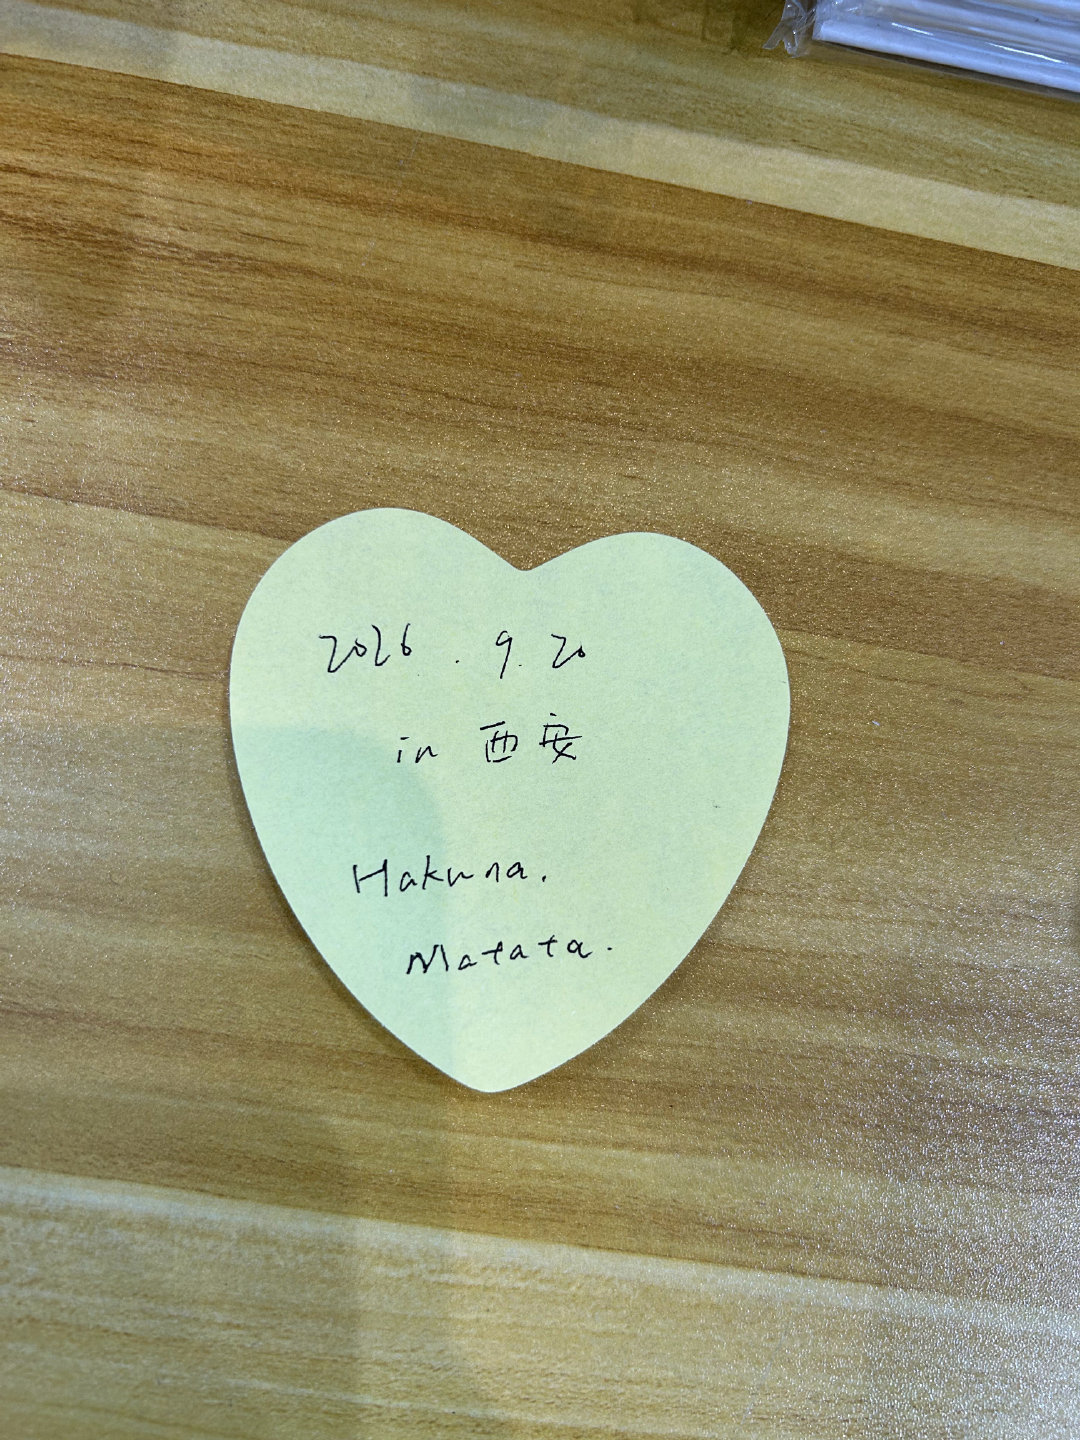 2026.9.20
in 西安
Hakuna.
Matata.